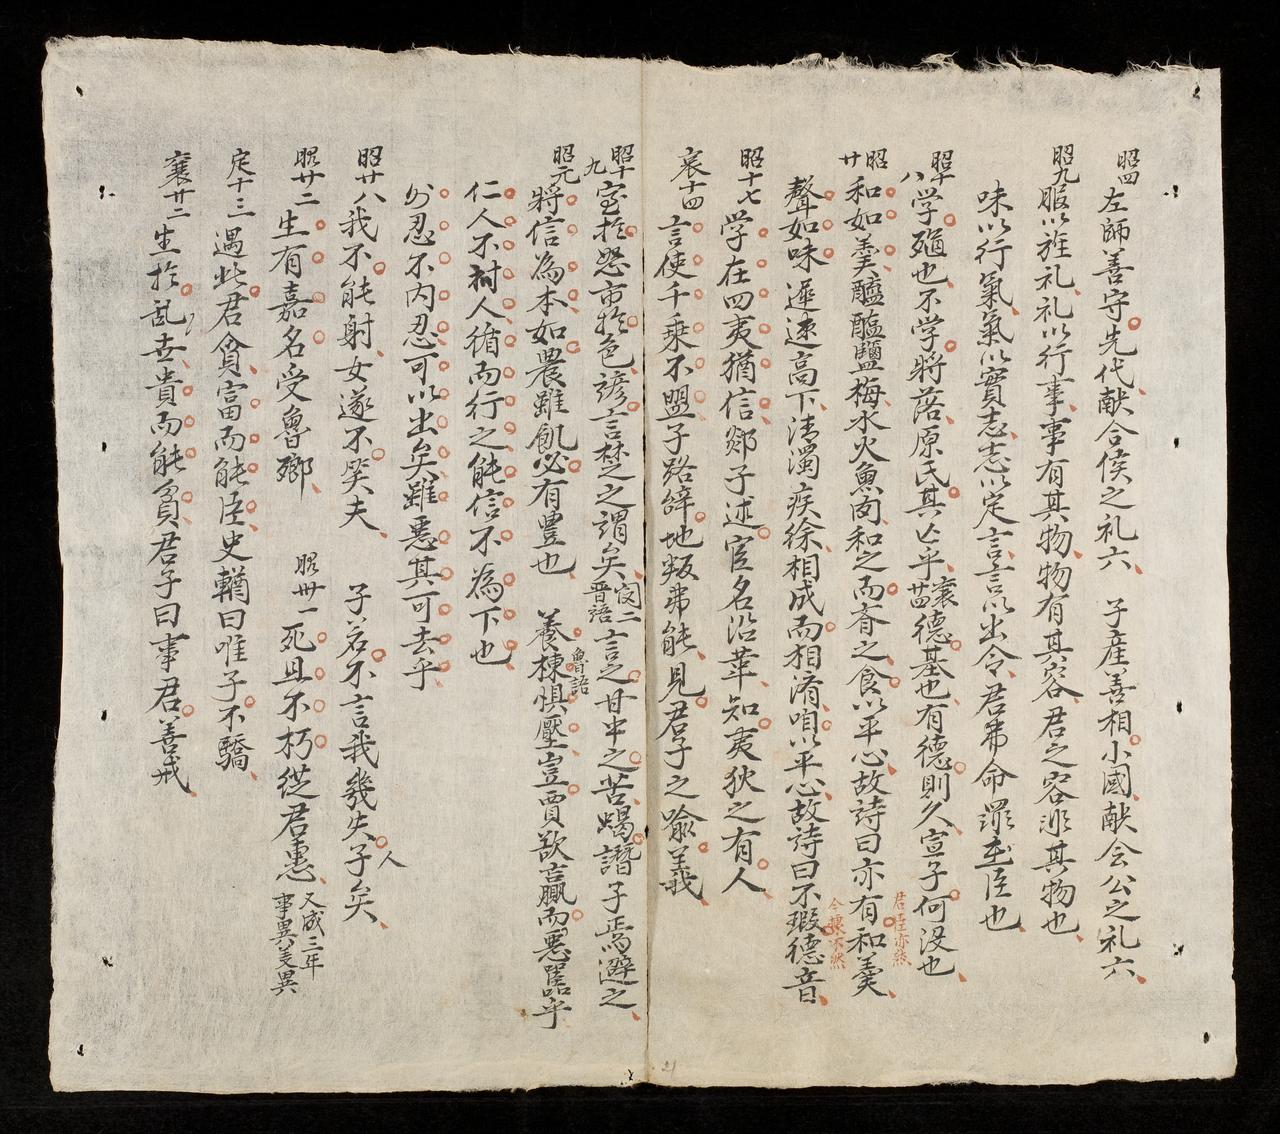 昭四左師善守先代献合侯之礼六 子產善相小國献会公之礼六
昭九服以旌礼礼以行事事有其物物有其容君之容非其物也
味以行氣氣以實志志以定言言以出令君弗命罪至臣也
昭十八学殖也不学將落原氏其亡乎襄廿四德基也有德則久宣子何没也
昭廿和如羹醯醢鹽梅水火魚肉和之而斉之食以平心故詩曰亦有和羹
君臣亦然
聲如味遅速高下清濁疾徐相成而相済咱以平心故詩曰不瑕德音
今據不然
昭十七学在四夷猶信郯子述官名沿革知夷狄之有人
哀十四言使千乗不盟子路辞地叛弗能見君子之喩義
昭十九室於怒市於色諺言楚之謂矣閔二晋語言之甘中之苦蝎譖子焉避之
昭元將信為本如農雖飢必有豊也 魯語養棟惧壓豈賈欲贏而悪嚣乎
仁人不討人循而行之能信不為下也
外忍不内忍可以出矣雖悪其可去乎
昭廿八我不能射女遂不笑夫 子若不言我幾失子人矣
昭廿二生有嘉名受魯郷 昭卅一死且不朽従君惠又成三年事異美異
定十三遇此君貪富而能臣史鰌曰唯子不驕
襄廿二生於乱世貴而能貧君子曰事君善戒